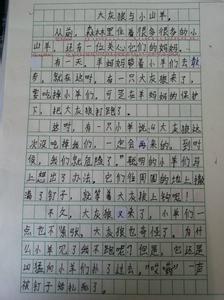 大灰狼与小山羊。
从前,森林里住着很多很多的小
山羊,还有一位关心它们的妈妈。
有一天,羊妈妈带着小羊们去散
步,就在这时,有一只大灰狼来了,
要吃掉小羊们,可是在羊妈妈的保护
下,把大灰狼打跑了。
这时,有一只小羊说:“大灰狼这
次没吃掉我们,一定会再来的,到时
候,我们就危险了。”聪明的小羊们马
上想出了办法,它们在周围的地上撒
满了钉子,就等着大灰狼上钩啦!
不久,大灰狼又来了,小羊们一
点也不紧张。大灰狼也奇怪了,为什
么小羊见了我不跑呢?但是,它还是
凶猛向小羊们扑了过去,“哎哟”一声
被钉子给扎死了。